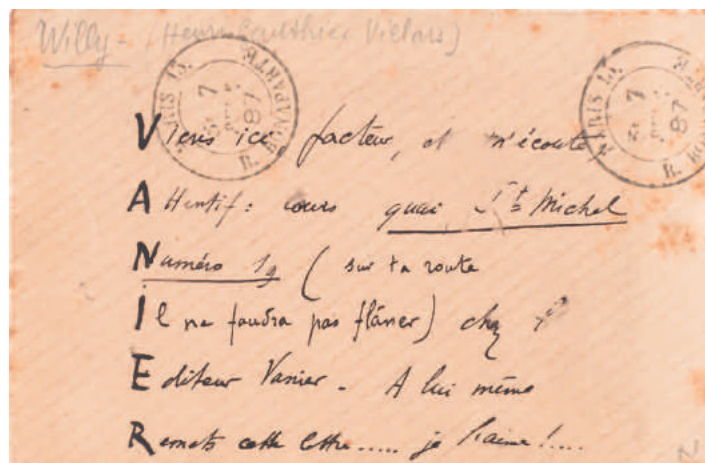 Willy - (Henri Gauthier Villars)
PARIS 13. R. BONAPARTE
7
87
PARIS 13. R. BON
7
87
Viens ici facteur, et m'écoute
Attentif : cours quai St Michel
Numéro 19 (sur ta route
Il ne faudra pas flâner) chez
Editeur Vanier - A lui même
Remets cette lettre..... je l'aime !....
N